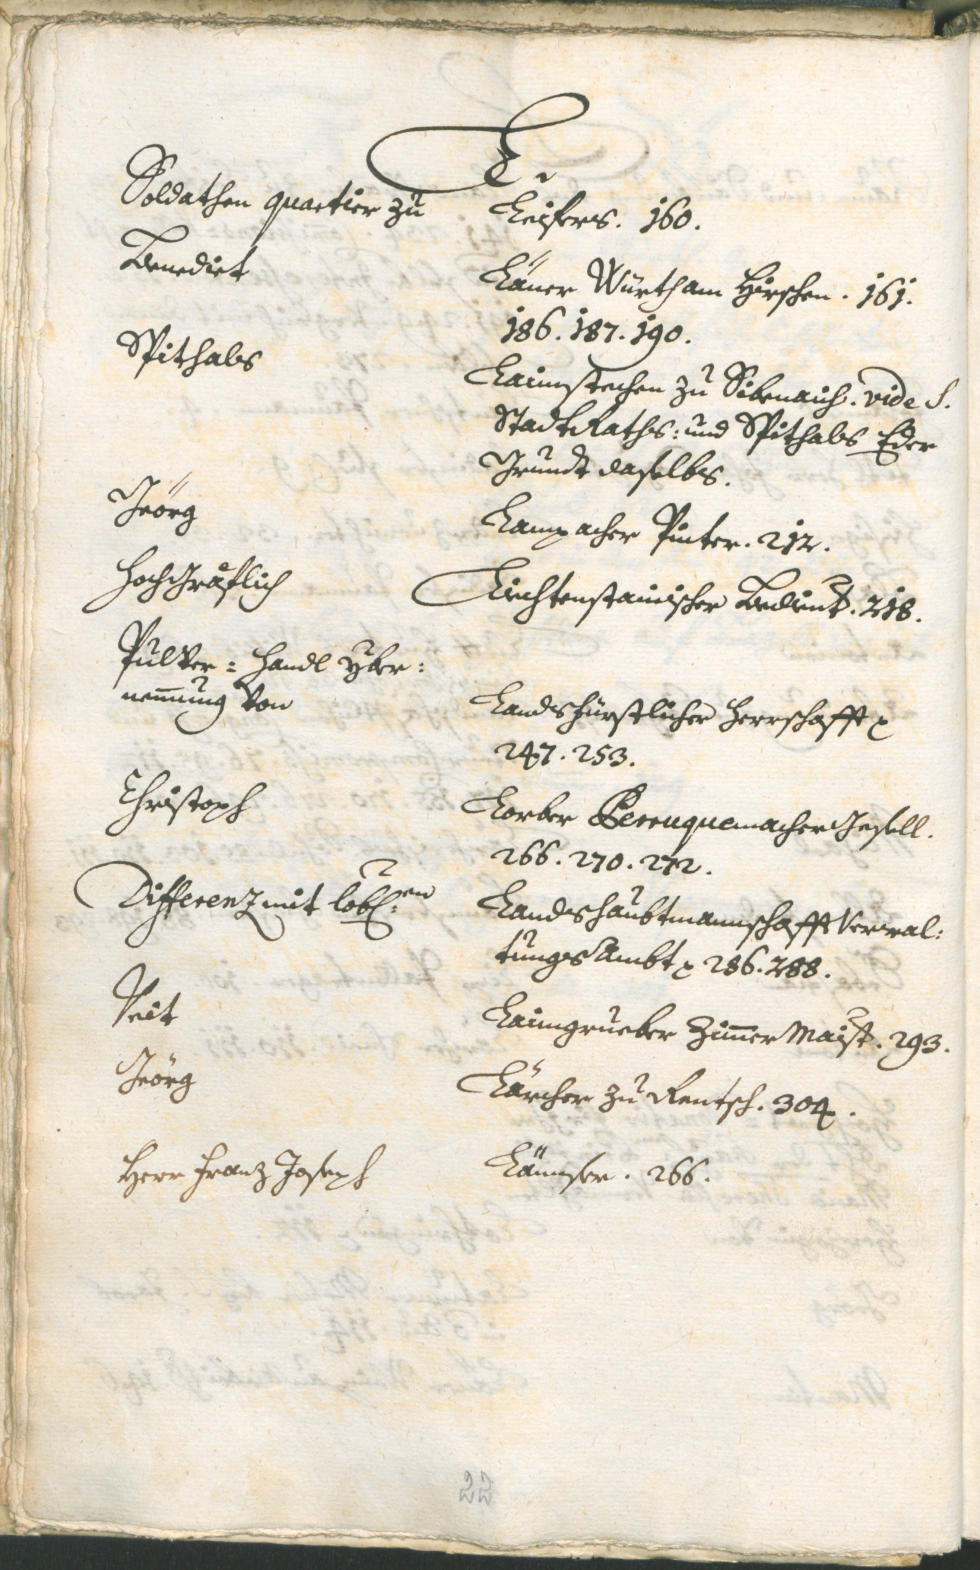 L.
Soldathen quartier zu Leifers. 160.
Benedict Läner Würth am Hirschen. 161.
186. 187. 190.
Spithals Laimstechen zu Sibenaich. vide S.
Stadt Raths: und Spithals Eder
Grundt daselbs.
Jeörg Lampacher Pinter. 212.
Hochgräflich Liechtenstainischer Bedient. 218.
Pulver: handl yber:
nemmung von Landsfürstlicher Herrschafft
247. 253.
Christoph Lorber Perruquemacher Gesell.
266. 270. 272.
Differenz mit löbl:en Landshaubtmannschafft Verwal:
tungs Ambt 286. 288.
Veit Laimgrueber Zimmer Maist. 293.
Jeörg Lärcher zu Rentsch. 304.
Herr Franz Joseph 266.
22